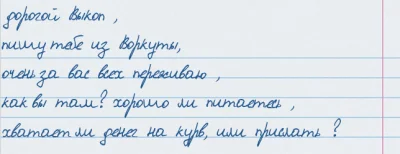 дорогой Выкоп,
пишу тебе из Воркуты,
очень за вас всех переживаю,
как вы там? хорошо ли питаетесь,
хватает ли денег на курв, или прислать?